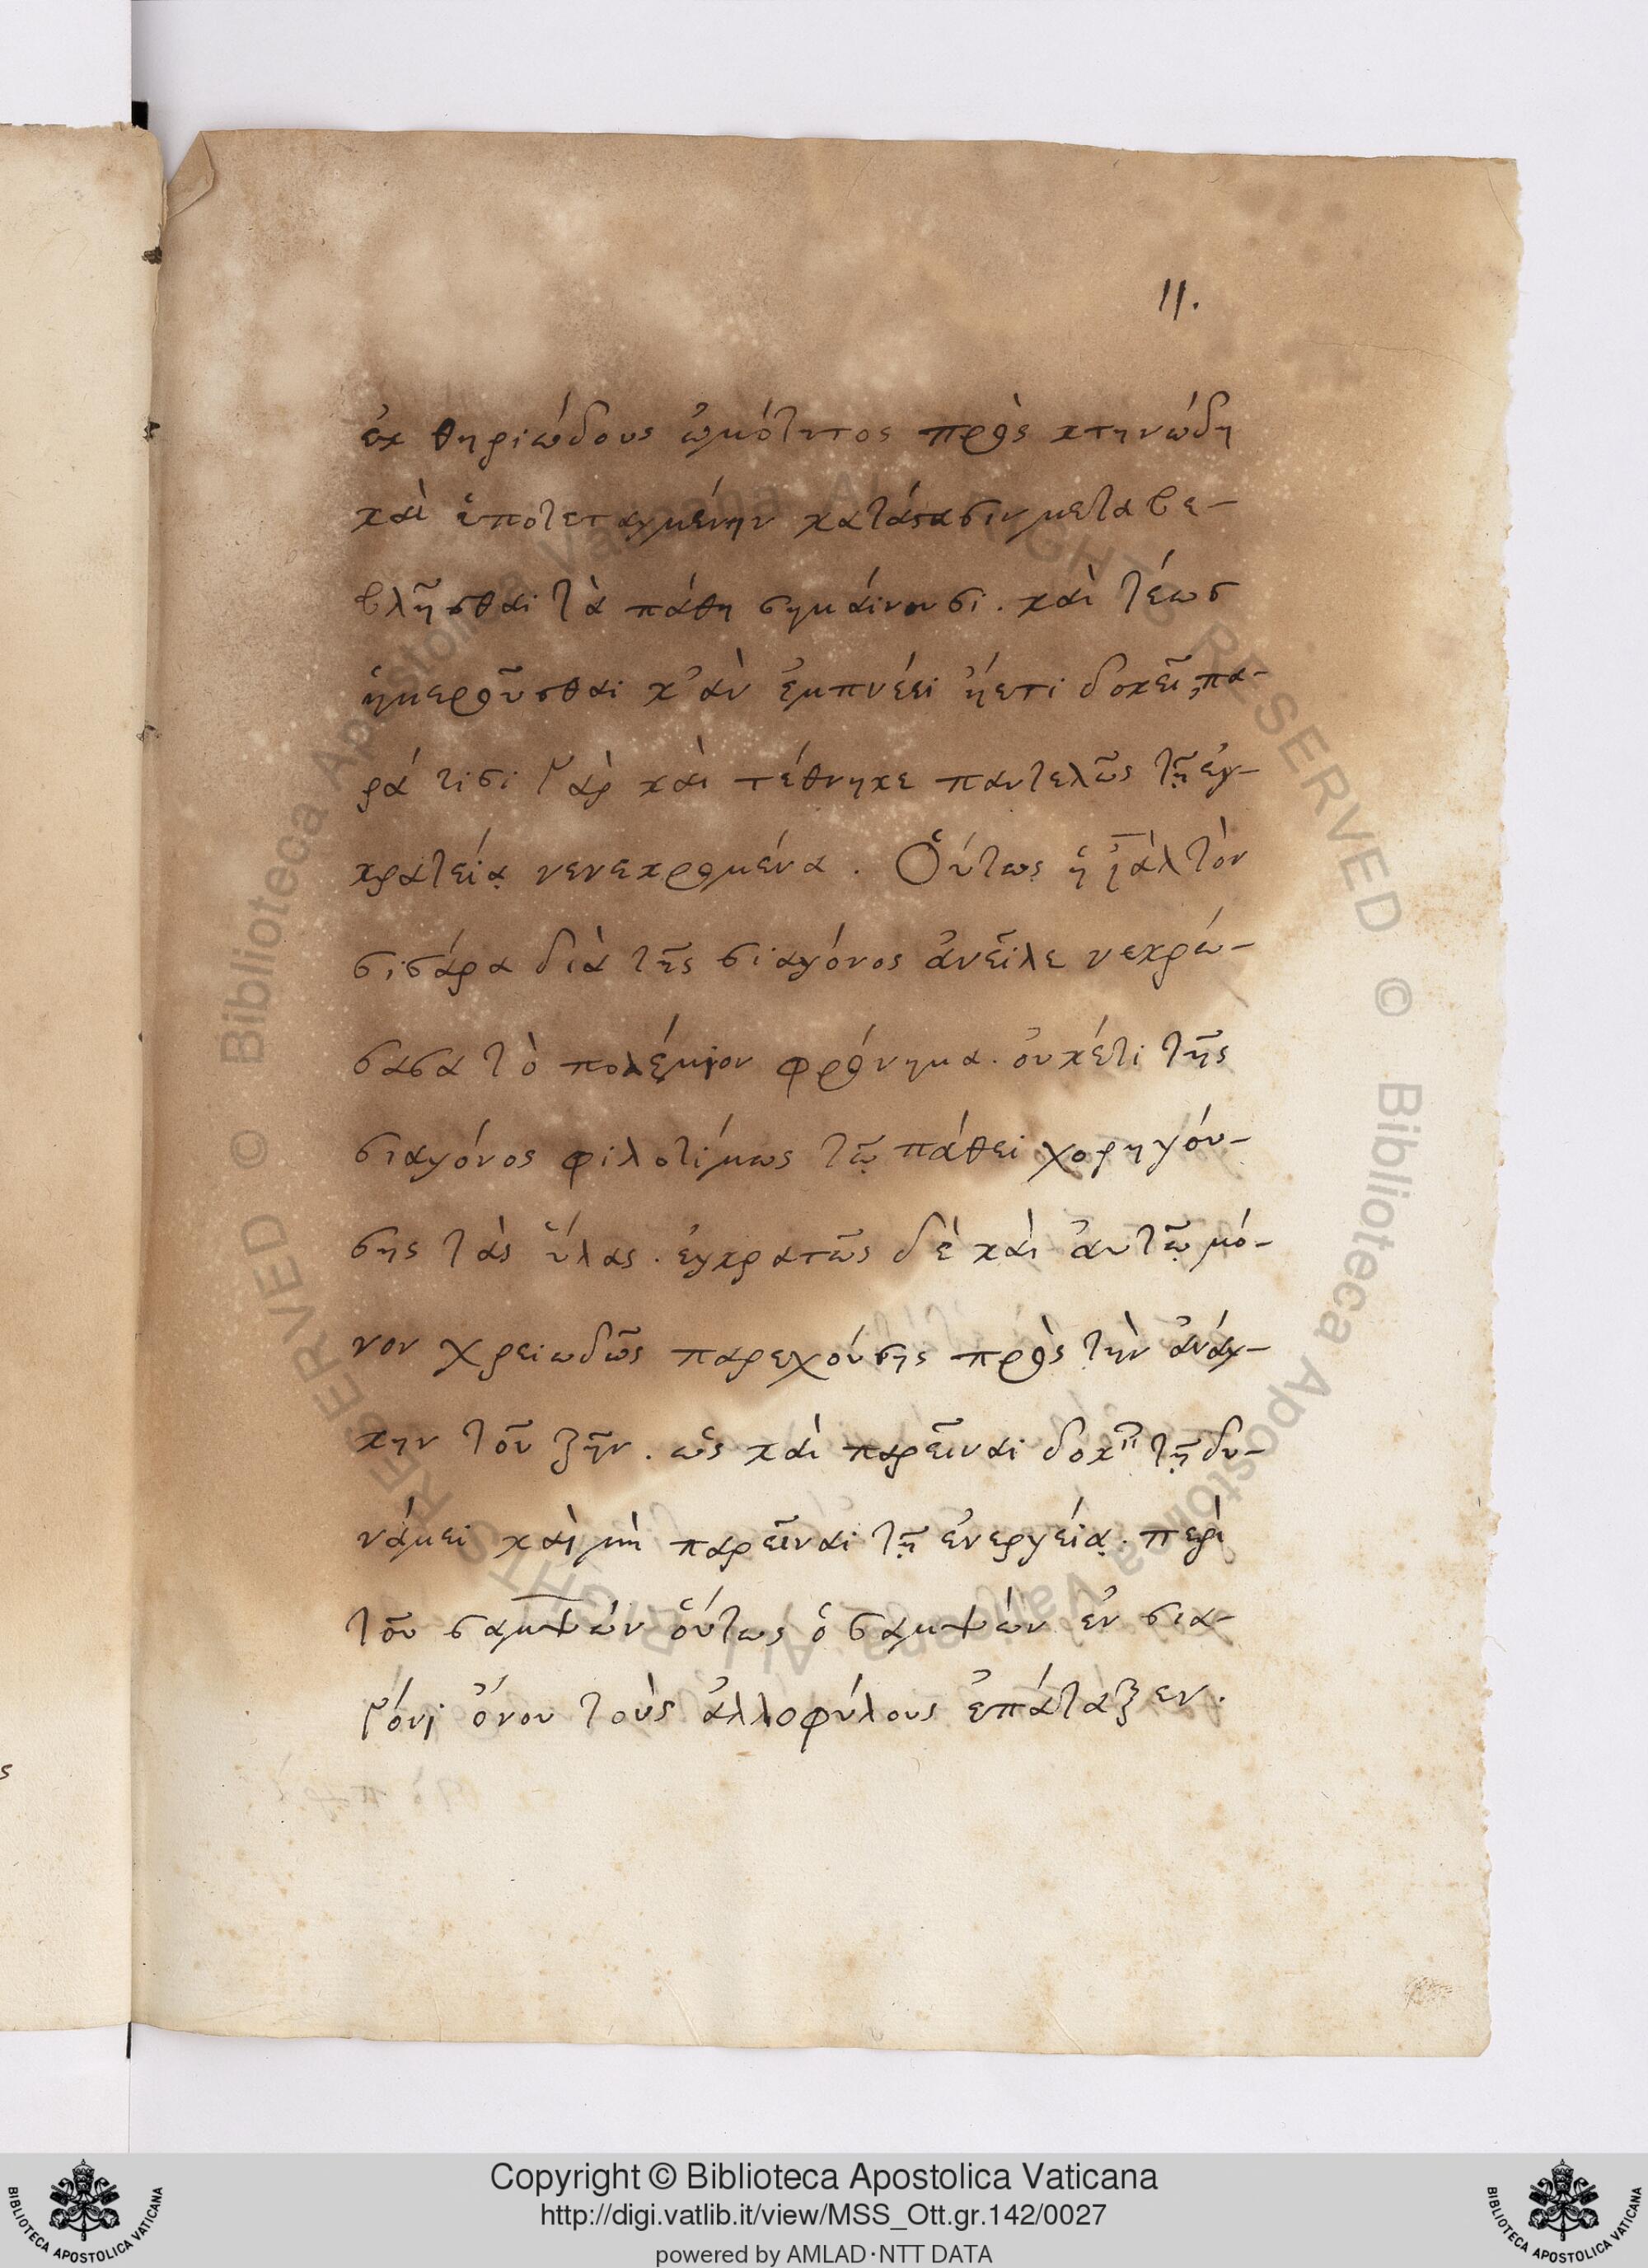 11.
ἐκ θηριώδους ὠμότητος πρὸς κτηνώδη
καὶ ὑποτεταγμένην κατάστασιν μεταβε-
βλῆσθαι τὰ πάθη σημαίνουσι. καὶ τέως
ἡμερῶσθαι κ' ἂν ἐμπνέει ἤετι δοκεῖ, πα-
ρά τισι γὰρ καὶ τέθνηκε παντελῶς τῇ ἐγ-
κρατείᾳ νενεκρωμένα. Οὕτως ἡ ἰαὴλ τὸν
σισάρα διὰ τῆς σιαγόνος ἀνεῖλε νεκρώ-
σασα τὸ πολέμιον φρόνημα. οὐκέτι τῆς
σιαγόνος φιλοτίμως τῷ πάθει χορηγού-
σης τὰς ὕλας. ἐγκρατῶς δὲ καὶ αὐτῷ μό-
νον χρειωδῶς παρεχούσης πρὸς τὴν ἀνάγ-
κην τοῦ ζῆν. ὡς καὶ παρεῖναι δοκεῖν τῇ δυ-
νάμει καὶ μὴ παρεῖναι τῇ ἐνεργείᾳ. περὶ
τοῦ σαμψών οὕτως ὁ σαμψών ἐν σια-
γόνι ὄνου τοὺς ἀλλοφύλους ἐπάταξεν.
Copyright © Biblioteca Apostolica Vaticana
http://digi.vatlib.it/view/MSS_Ott.gr.142/0027
powered by AMLAD·NTT DATA
BIBLIOTECA APOSTOLICA VATICANA
BIBLIOTECA APOSTOLICA VATICANA
© Biblioteca Apostolica Vaticana ALL RIGHTS RESERVED
© Biblioteca Apostolica Vaticana ALL RIGHTS RESERVED